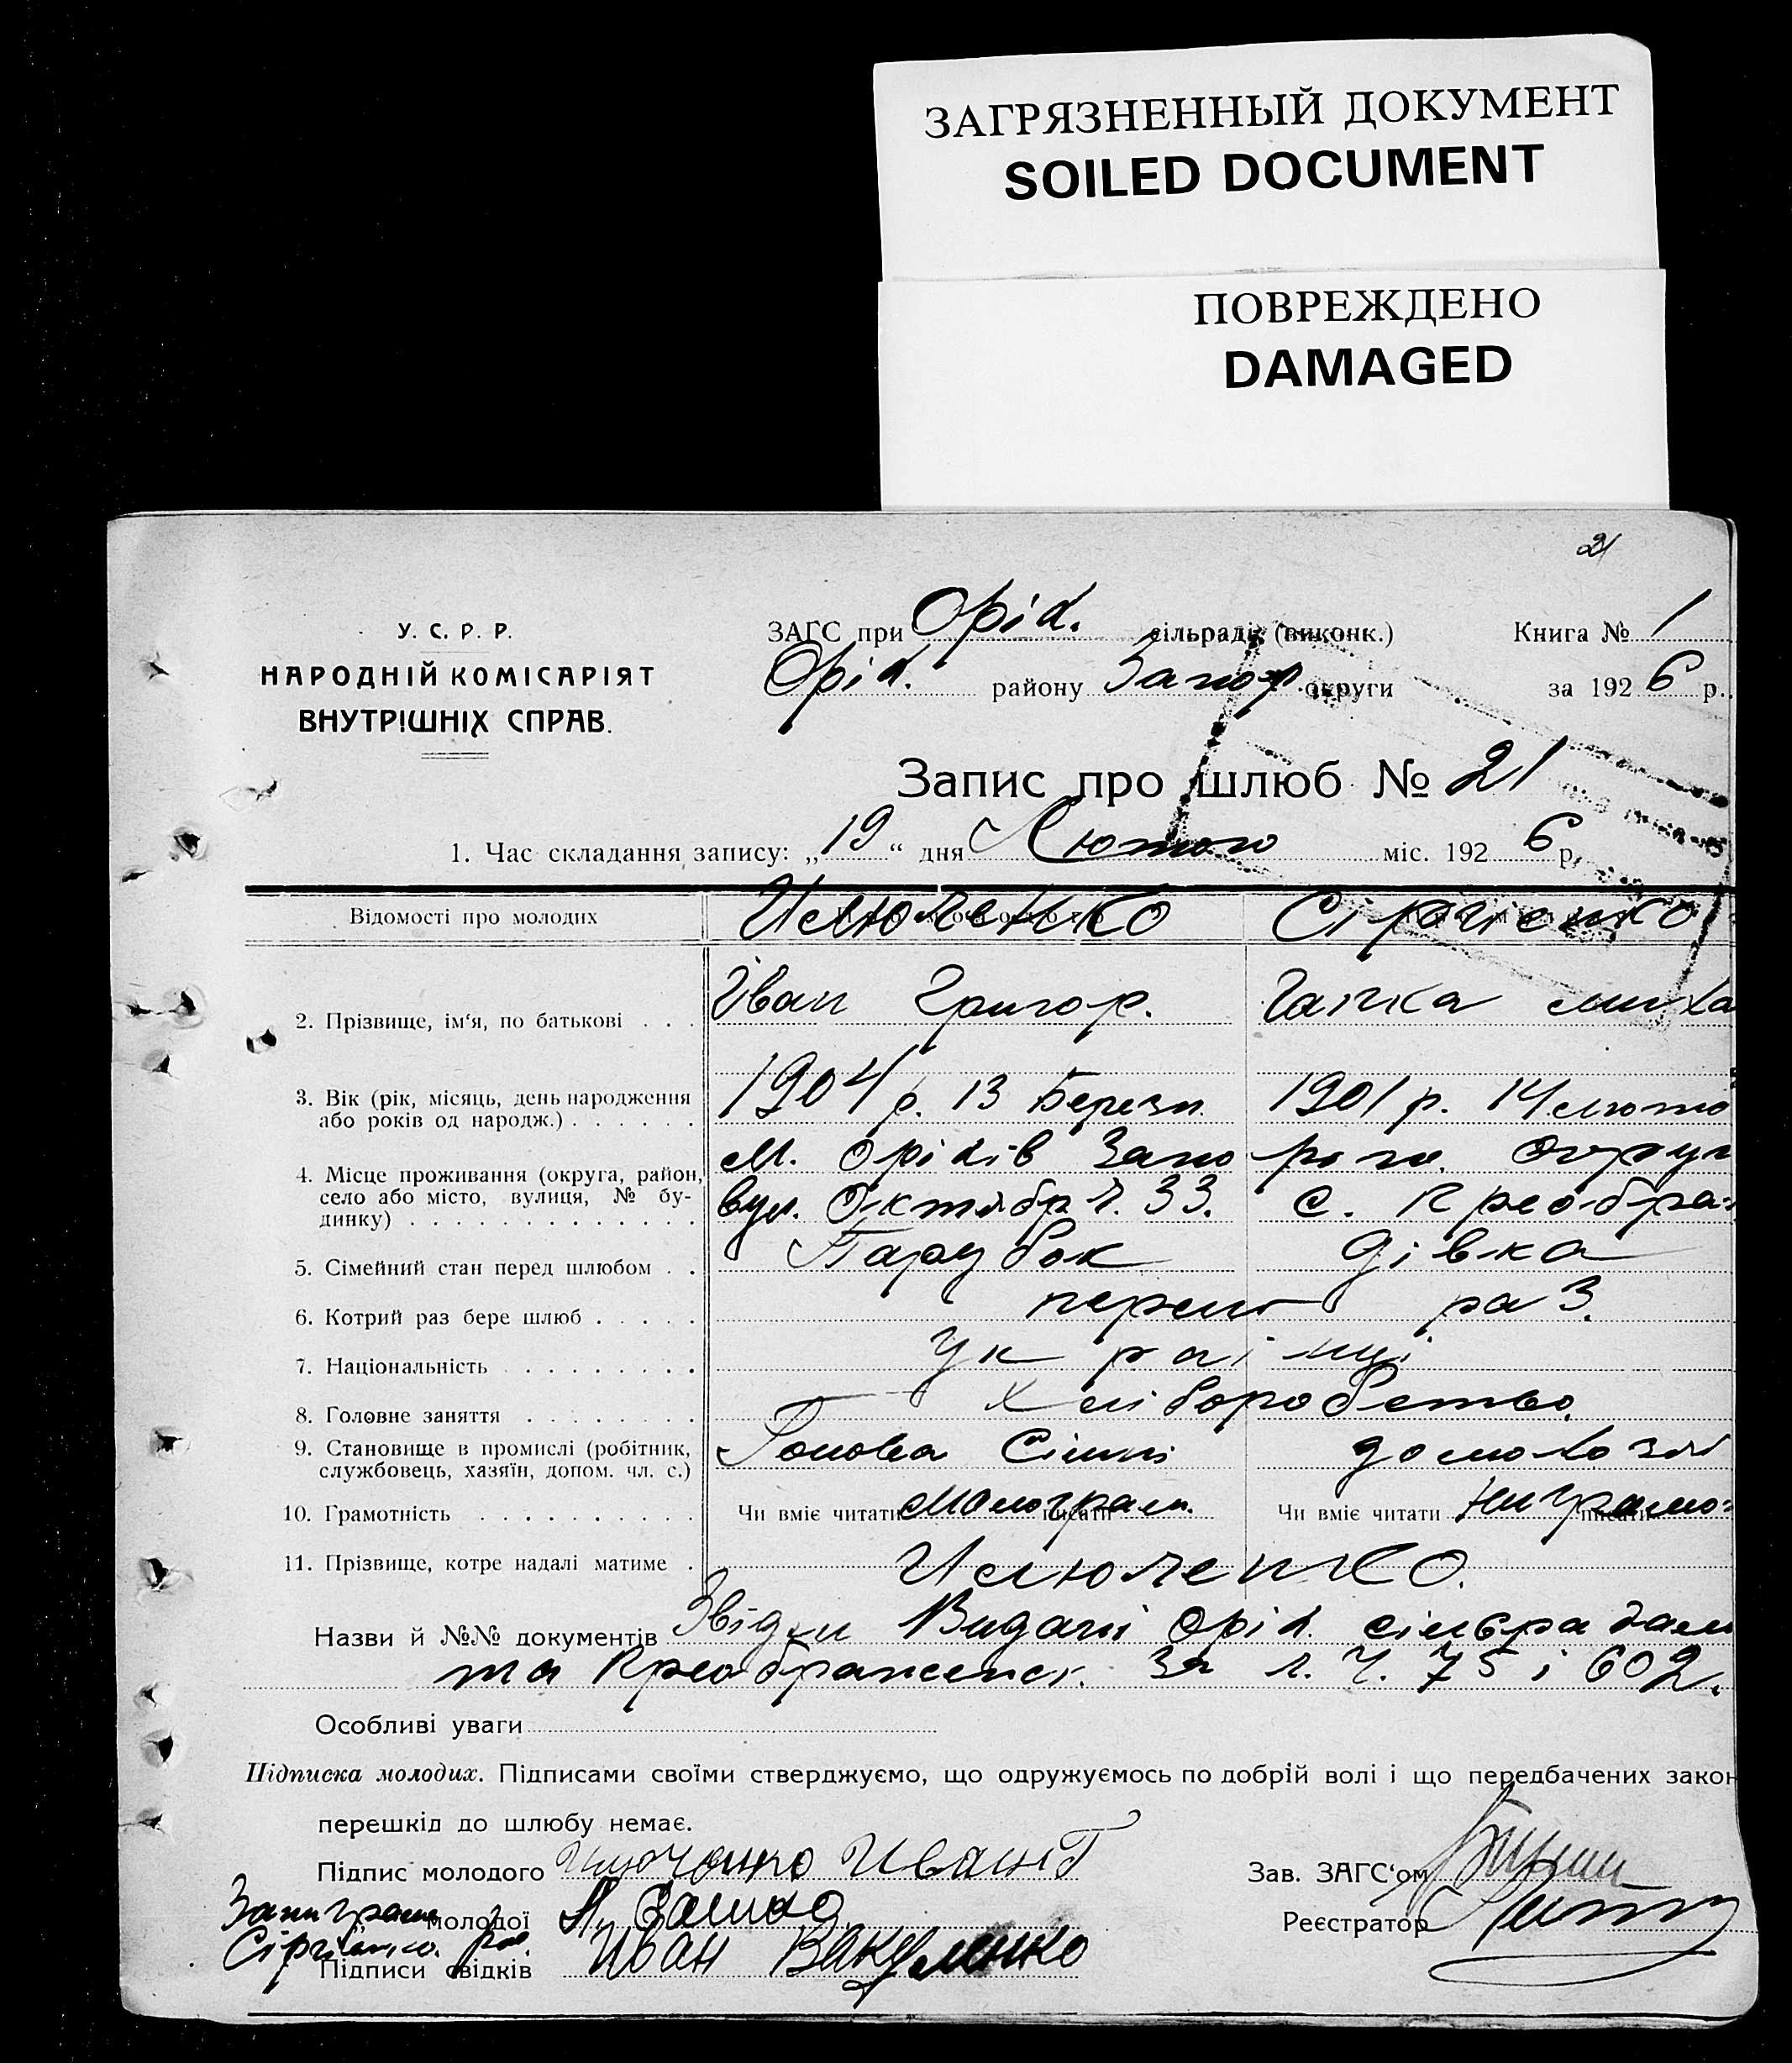 ЗАГРЯЗНЕННЫЙ ДОКУМЕНТ
SOILED DOCUMENT
ПОВРЕЖДЕНО
DAMAGED
21
У. С. Р. Р.
НАРОДНІЙ КОМІСАРІЯТ
ВНУТРІШНІХ СПРАВ.
ЗАГС при Оріх. сільраді (виконк.) Книга № 1
Оріх. району Запор. округи за 1926 р.
Запис про шлюб № 21
1. Час складання запису: „19“ дня Лютого міс. 1926 р.
Відомості про молодих Ілюченко Сірченко
2. Прізвище, ім‘я, по батькові . . . Іван Григор. Гапка Миха
3. Вік (рік, місяць, день народження 1904 р. 13 Березн. 1901 р. 14 Люто
або років од народж.) . . . . . .
4. Місце проживання (округа, район, м. Оріхів Запо різж. Округ
село або місто, вулиця, № бу- вул. Октябр ч. 33. с. Преобра
динку) . . . . . . . . . . . . .
5. Сімейний стан перед шлюбом . . Парубок Дівка
6. Котрий раз бере шлюб . . . . . перший раз.
7. Національність . . . . . . . . Українці
8. Головне заняття . . . . . . . . Хліборобство.
9. Становище в промислі (робітник, Голова Сімї домохазяй
службовець, хазяїн, допом. чл. с.)
10. Грамотність . . . . . . . . . . Чи вміє читати малограм. писати Чи вміє читати Ниграмо писати
11. Прізвище, котре надалі матиме . Ілюченко.
Назви й №№ документів Звідки Видані Оріх. сільрадам
та Преображенск. за ч. ч. 75 і 602.
Особливі уваги
Підписка молодих. Підписами своїми стверджуємо, що одружуємось по добрій волі і що передбачених закон
перешкід до шлюбу немає.
Підпис молодого Илюченко Иван Г Зав. ЗАГС‘ом
За ниграм. молодої Реєстратор
Сірченко роз.
Підписи свідків Иван Вакуленко